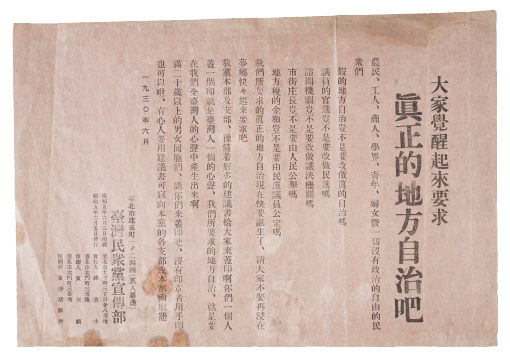 大家覺醒起來要求
眞正的地方自治吧
農民、工人、商人、學界、青年、婦女曁一切沒有政治的自由的民
衆們
假的地方自治豈不是要改做眞的自治嗎
議員的官選豈不是要改做民選嗎
諮問機關豈不是要改做議決機關嗎
市街庄長豈不是要由人民公舉嗎
地方稅的金額豈不是要由民選議員公定嗎
我們所要求的眞正的地方自治現在快要誕生了、請大家不要再浸在
夢鄉快々起來要求吧
我黨本部及支部、預備着好多的建議書給大家來蓋印啊你們一個人
蓋一個印就是臺灣人一個的心聲、我們所要求的地方自治、就是要
在我們全臺灣人的心聲中產生出來啊
滿二十歲以上的男女同胞們、請你們來蓋印吧、沒有印章者用手印
也可以啦、有心人要用建議書可以向本黨的各支部或本部領取罷
一九三〇年六月
臺北市建成町一ノ二四四
臺灣民衆黨宣傳部